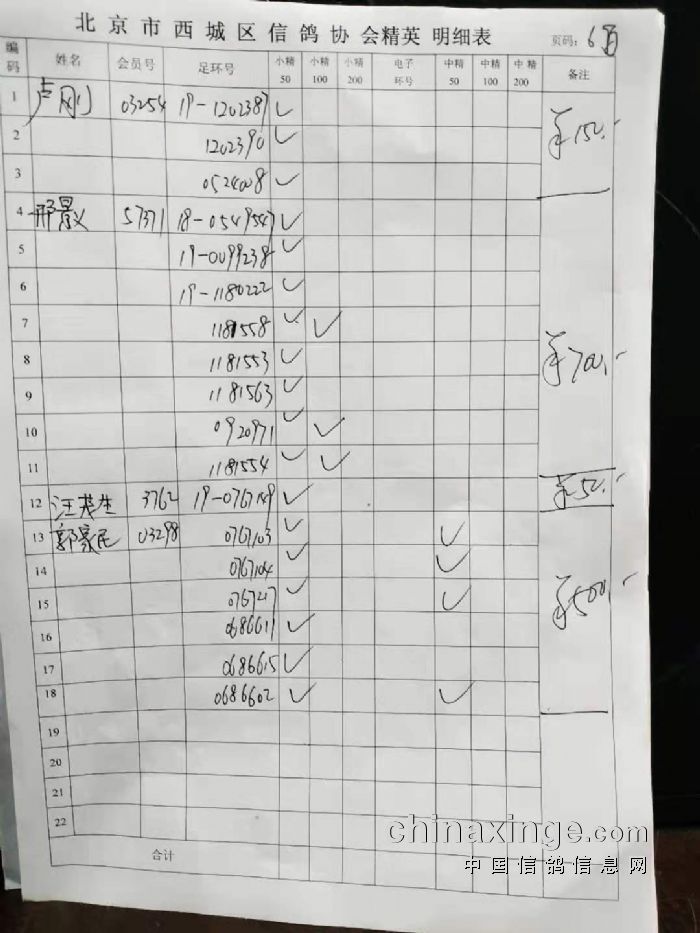 北京市西城区信鸽协会精英 明细表
页码：6
编码 姓名 会员号 足环号 小精50 小精100 小精200 电子环号 中精50 中精100 中精200 备注
1 卢刚 03254 19-1202387 ✓
2 1202390 ✓ ¥150.-
3 0524008 ✓
4 邢景义 57371 18-0549547 ✓
5 19-0099238 ✓
6 19-1180222 ✓
7 1181558 ✓ ✓
8 1181553 ✓ ¥700.-
9 1181563 ✓
10 0920971 ✓ ✓
11 1181554 ✓ ✓
12 汪茂生 3762 19-0767149 ✓ ¥50.-
13 郭家民 03298 0767103 ✓ ✓
14 0767104 ✓ ✓
15 0767217 ✓ ✓ ¥500.-
16 0686611 ✓
17 0686615 ✓
18 0686602 ✓ ✓
19
20
21
22
合计
chinaxinge.com
中国信鸽信息网